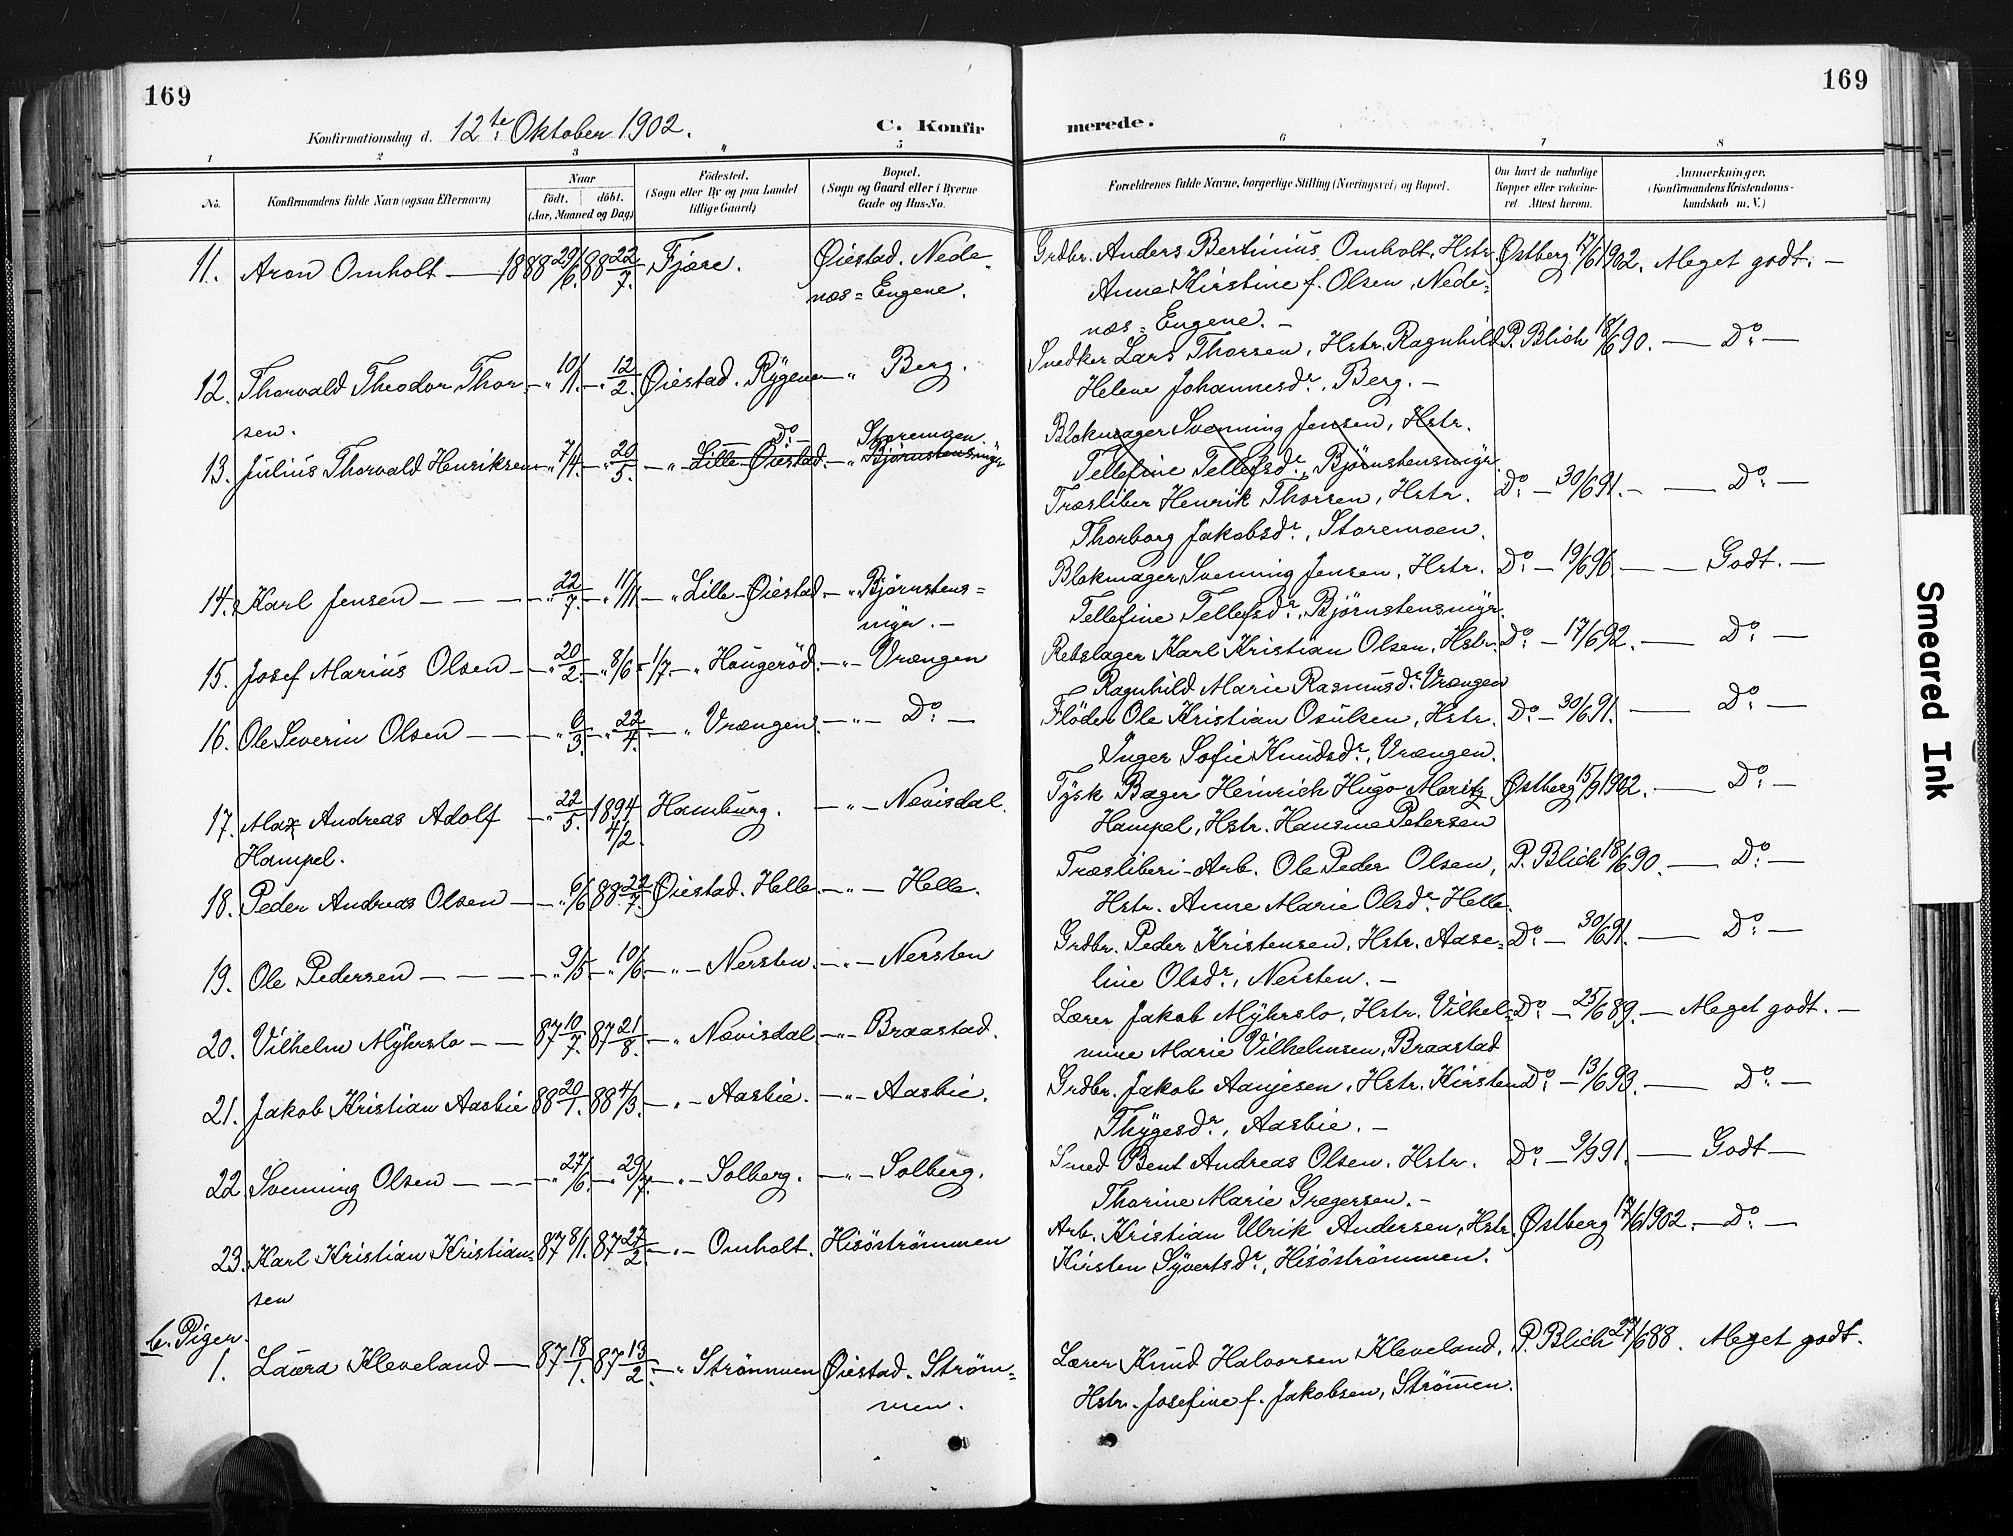 169
169
Konfirmationsdag d. 12te Oktober 1902.
C. Konfir
merede.
1 2 3 4 5 6 7 8
No. Konfirmandens fulde Navn (ogsaa Efternavn) Naar födt. döbt. (Aar, Maaned og Dag) Födested. (Sogn eller By og paa Landet tillige Gaard) Bopæl. (Sogn og Gaard eller i Byerne Gade og Hus-No. Forældrenes fulde Navne, borgerlige Stilling (Næringsvei) og Bopæl. Om havt de naturlige Kopper eller vakcineret Attest herom. Anmærkninger. (Konfirmandens Kristendomskundskab m. V.)
11. Aron Omholt — 1888 29/6. 88 22/7. Fjære. Øiestad. Nede- Grdbr. Anders Bertinius Omholt, Hstr. Østberg 17/6 1902. Meget godt. —
næs=Engene. Anne Kirstine f. Olsen, Nede=
næs=Engene. —
12. Thorvald Theodor Thor- — " 10/1. — " 12/2. Øiestad. Rygene — " Berg. Snedker Lars Thorsen, Hstr. Ragnhild P. Blich 18/6 90. — Do —
sen. Helene Johannesdr., Berg. —
Blokmager Svenning Jensen, Hstr.
Do — Storemoen. Tellefine Tellefsdr., Bjørnstensmyr.
13. Julius Thorvald Henriksen — " 7/4. — " 20/5. — " Lille-Øiestad. — " Bjørnstensmyr Træsliber Henrik Thorsen, Hstr. Do. — 30/6 91. — — Do. —
Thorborg Jakobsdr., Storemoen.
14. Karl Jensen — — — " 22/7. — " 11/11 — " Lille-Øiestad. — " Bjørnstens= Blokmager Svenning Jensen, Hstr. Do. — 19/6 96. — — Godt. —
myr. — Tellefine Tellefsdr., Bjørnstensmyr.
15. Josef Marius Olsen — — " 20/2. — " 8/6 = 1/7. — " Haugeröd. — " — Vrængen Rebslager Karl Kristian Olsen, Hstr. Do. — 17/6 92. — Do. —
Ragnhild Marie Rasmusdr. Vrængen
16. Ole Severin Olsen — — — " 6/3. — " 22/4. — " Vrængen. — " — Do. — Flöder Ole Kristian Osulsen, Hstr. Do. — 30/6 91. — Do. —
Inger Sofie Knudsdr., Vrængen.
17. Max Andreas Adolf — " 22/5. 1894 4/2. Hamburg. — " — Nævisdal. Tysk Bager Heinrich Hugo Moritz Østberg 15/9 1902. — Do. —
Hampel. Hampel, Hstr. Hansine Petersen
18. Peder Andreas Olsen — — " 6/6 88 22/7. Øiestad. Helle. — " — Helle. Træsliberi-Arb. Ole Peder Olsen, P. Blich 18/6 90. — Do. —
Hstr. Anne Marie Olsdr. Helle.
19. Ole Pedersen — — — — " 9/5 — " 10/6 — " — Nersten. — " — Nersten Grdbr. Peder Kristensen, Hstr. Aase= Do. — 30/6 91. — Do. —
line Olsdr., Nersten. —
20. Vilhelm Myhrslo — — 87 10/7. 87 21/8. — " Nævisdal — " — Braastad. Lærer Jakob Myhrslo, Hstr. Vilhel= Do. — 25/6 89. — Meget godt. —
mine Marie Vilhelmsen, Braastad
21. Jakob Kristian Aasbie 88 20/1. 88 4/3. — " — Aasbie. — " — Aasbie. Grdbr. Jakob Aanjesen, Hstr. Kirsten Do. — 13/6 93. — Do. —
Thygesdr., Aasbie. —
22. Svenning Olsen — — — — " 27/6. — " 29/7. — " — Solberg. — " — Solberg. Smed Bent Andreas Olsen. Hstr. Do. — 9/9 91. — Godt —
Thorine Marie Gregersen. —
23. Karl Kristian Kristian= 87 8/1. 87 27/2. — " — Omholt. Hisöströmmen Arb. Kristian Ulrik Andersen, Hstr. Østberg 17/6 1902. — Do. —
sen Kirsten Syvertsdr., Hisöströmmen.
b. Piger.
1. Laura Kleveland — 87 18/1. 87 13/2. — " Strömmen Øiestad. Ström= Lærer Knud Halvorsen Kleveland, P. Blich 27/6 88. Meget godt.
men. Hstr. Josefine f. Jakobsen, Strömen.
Smeared Ink